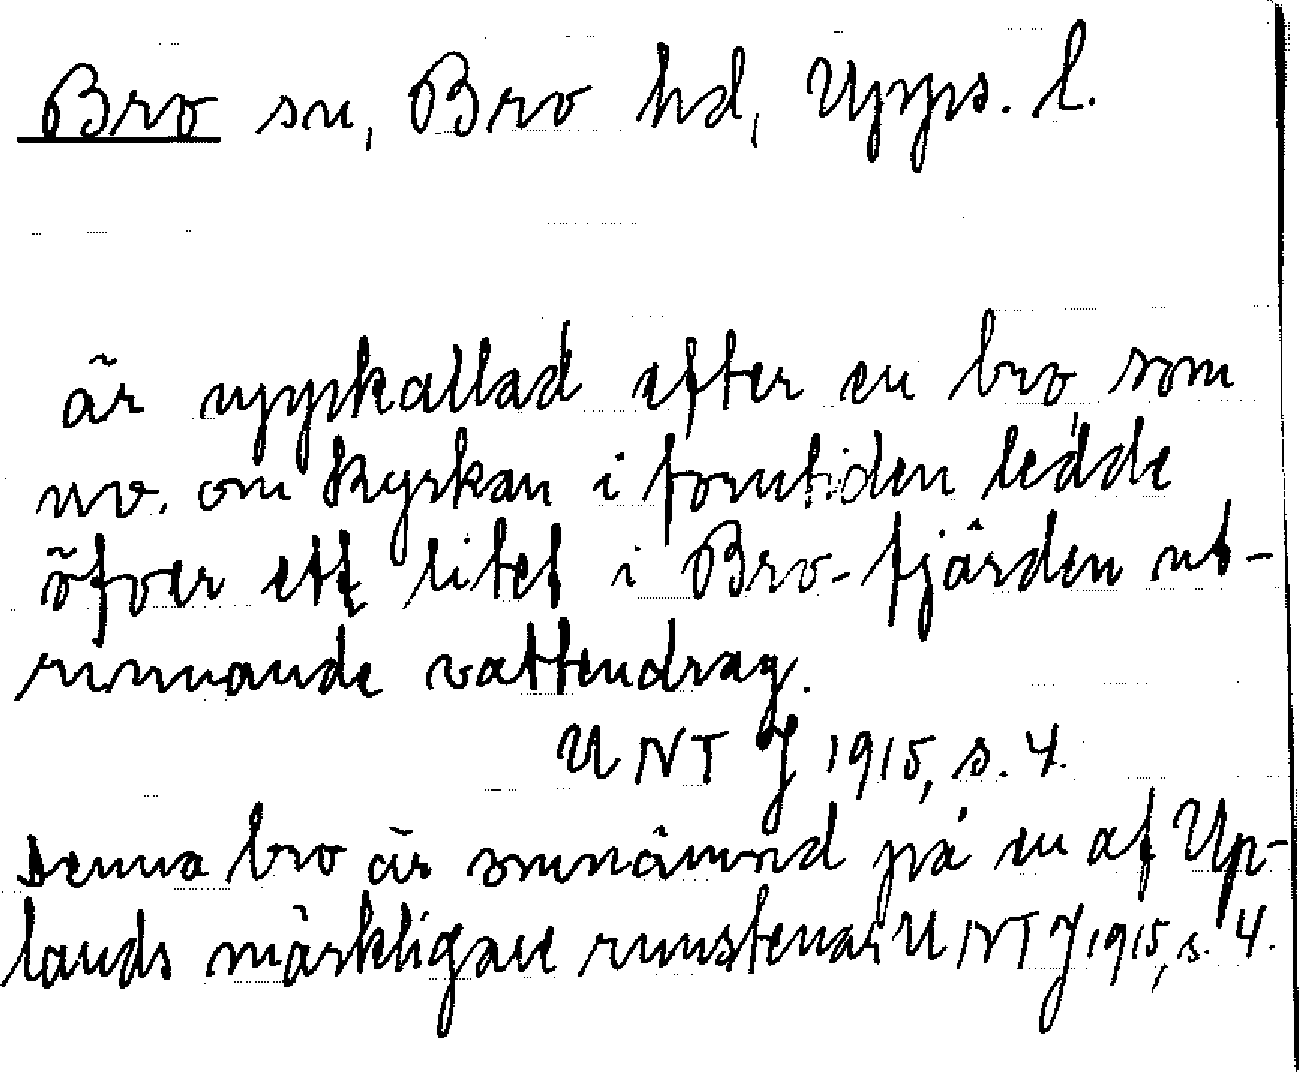 Bro sn, Bro hd, Upps. l.
är uppkallad efter en bro, som
nv. om kyrkan i forntiden ledde
öfver ett litet i Bro-fjärden ut-
rinnande vattendrag.
UNT J 1915, s. 4.
Denna bro är omnämnd på en af Up-
lands märkligare runstenar, UNT J 1915, s. 4.